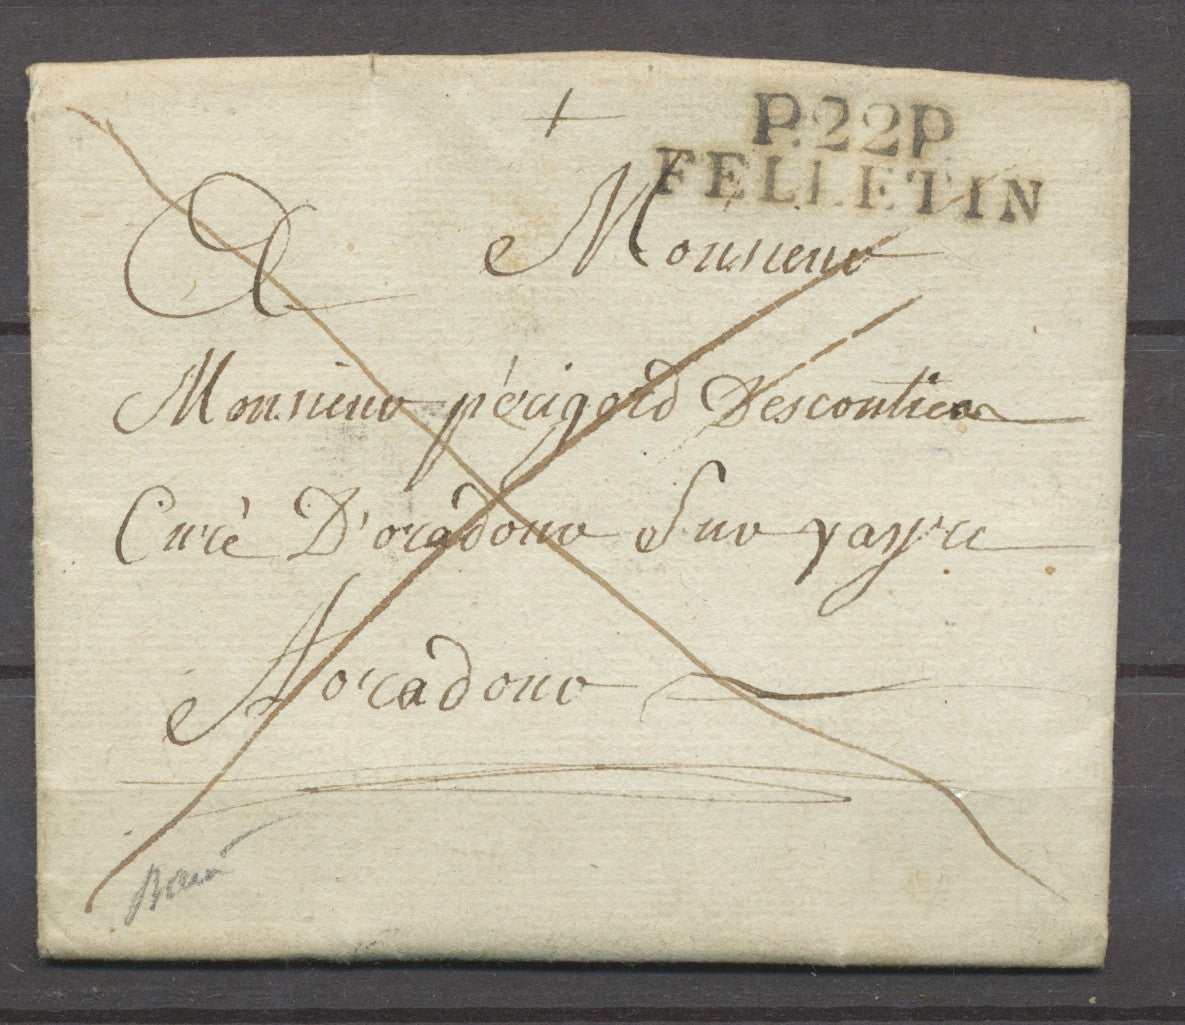 P.22.P.
FELLETIN
A Monsieur
Monsieur périgord Descoutier
Curé D'oradour Sur vayre
A oradour